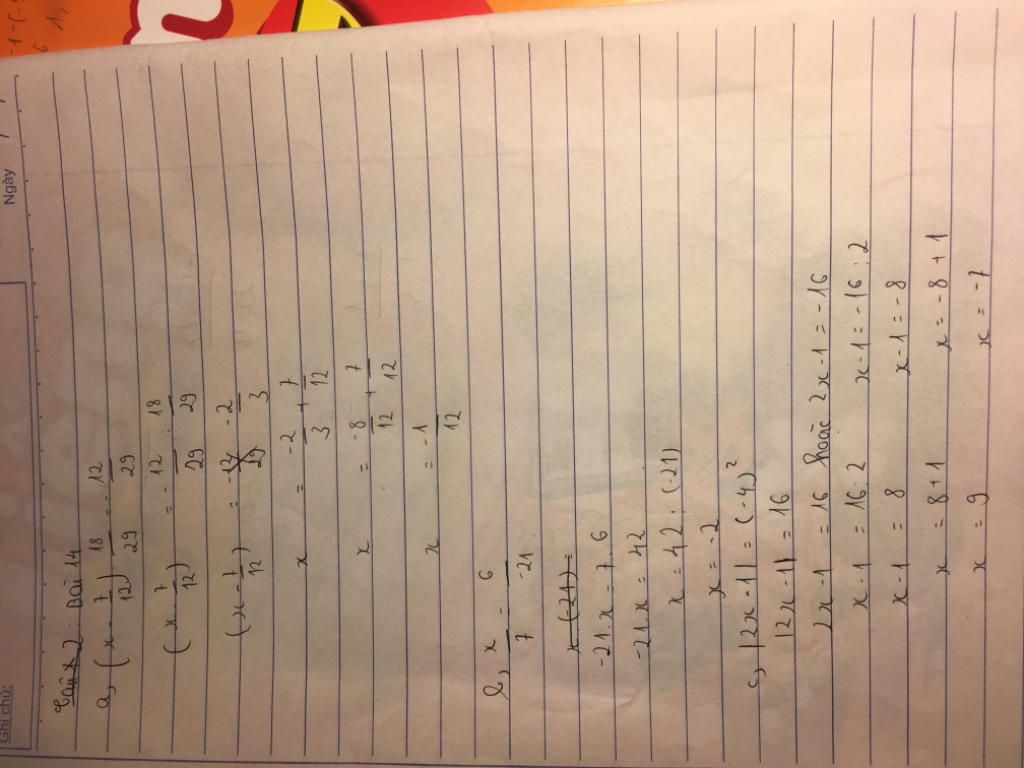 Ghi chú:
Ngày
Bài 14
a, (x - 7/12) · 18/29 = -12/29
(x - 7/12) = -12/29 : 18/29
(x - 7/12) = -2/3
x = -2/3 + 7/12
x = -8/12 + 7/12
x = -1/12
b, x/7 = 6/-21
x (-21) =
-21x = 7 . 6
-21x = 42
x = 42 : (-21)
x = -2
c, |2x - 1| = (-4)²
|2x - 1| = 16
2x - 1 = 16 hoặc 2x - 1 = -16
x - 1 = 16 : 2 x - 1 = -16 : 2
x - 1 = 8 x - 1 = -8
x = 8 + 1 x = -8 + 1
x = 9 x = -7